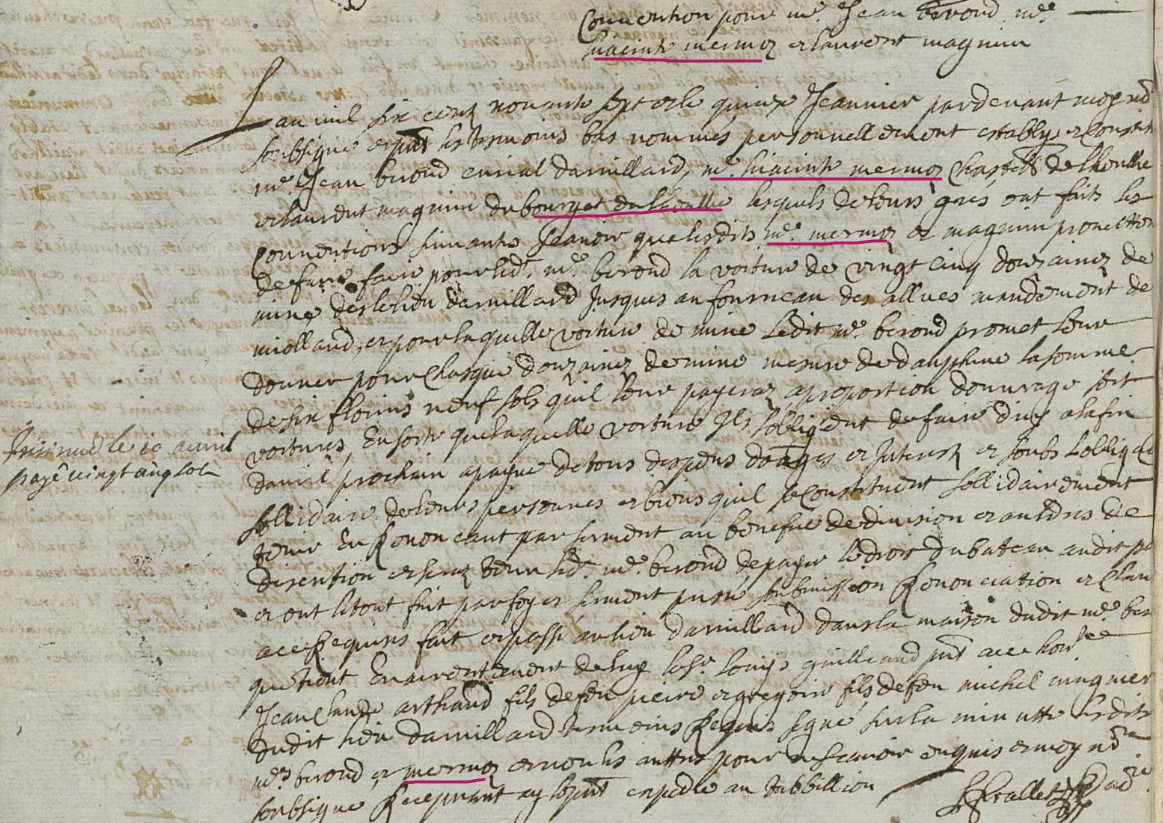 Convention pour me. Jean berond me.
hiacinte mermoz et laurent magnin
Lan mil six centz nonante sept et le quinze Jeanvier pardevant moy nore
soubsigne et pnt les tesmoins bas nommes personnellement establys et Constitues
me. Jean berond curial darvillard, me. hiacinte mermoz Chastell delheullie
et laurent magnin du bourget enlheullie lesquels de leurs gres ont faits les
conventions suivantes scavoir que lesdits me. mermoz et magnin promettent
de faire pour ledt. me. berond la voiture de vingt cinq douzaines de
mine des le lieu darvillard Jusques au fourneau des allues mandement de
miolland, et pour laquelle voiture de mine Ledit me. berond promet leur
donner pour Chasque douzaines de mine mesure de dauphine la somme
de six florins neuf sols quil leur payeraz aproportion douvrage soit
voitures, Ensorte que laquelle voiture Ils sobligent de faire dicy alafin
davril prochain apayne de tous despens domages et Interestz et soubs lobligaon
sollidaire de leurs personnes et biens quil se Constituent sollidairement
tenir En Renonceant par serment au benefice de division et
discution et seraz tenu ledt. me. berond de payer le droit du bateau audit
et ont le tout fait par foy et serment preste soubmission Renonciation et Clau
ace Requises fait et passé au lieu darvillard dans la maison dudit me. ber
quil tient En de sr. Louys guilliand pnt ace honble
Jean Claude arthaud fils de feu pierre et gregoire fils de feu michel
dudit lieu darvillard tesmoins Requis signé sur la minutte lesdits
mes berond et mermoz et non les auttres pour ne scavoir enquis et moy nore
soubsigne Recepvant ay le pnt expedie au Tabbellion
Jay le 10 avril
payé vingt cinq sols